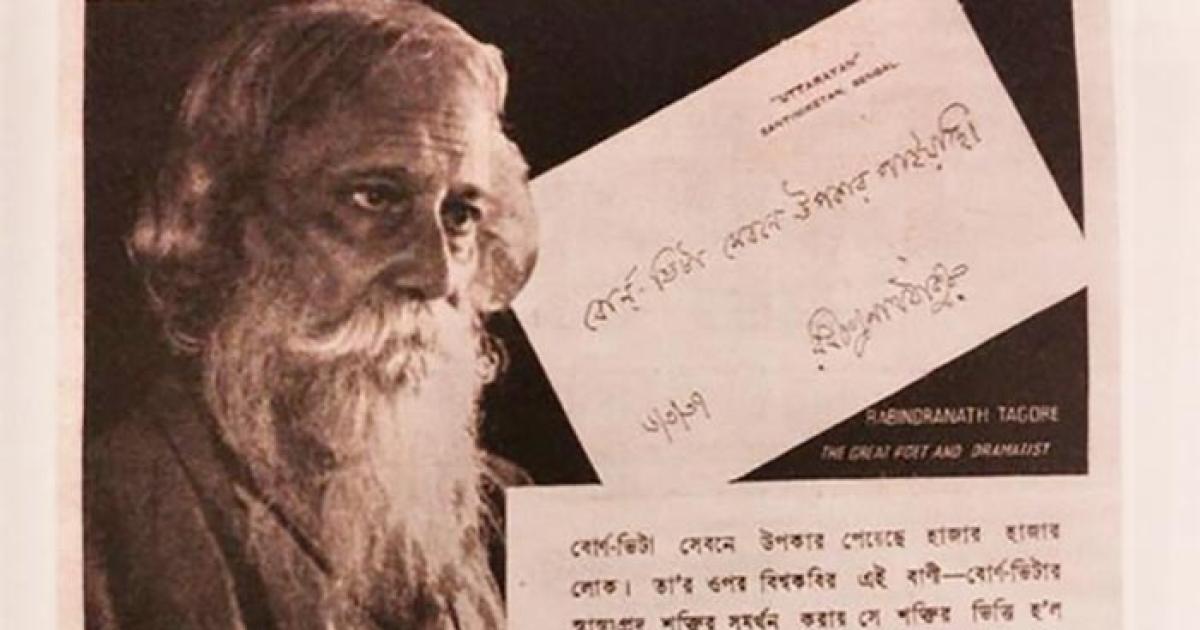 "UTTARAYAN"
SANTINIKETAN, BENGAL.
বোর্ন-ভিটা সেবনে উপকার পাইয়াছি।
রবীন্দ্রনাথ ঠাকুর
৬/৩/৩৭
RABINDRANATH TAGORE
THE GREAT POET AND DRAMATIST
বোর্ণ-ভিটা সেবনে উপকার পেয়েছে হাজার হাজার
লোক। তা'র ওপর বিশ্বকবির এই বাণী—বোর্ণ-ভিটার
স্বাস্থ্যপ্রদ শক্তির সমর্থন করায় সে শক্তির ভিত্তি হ'ল